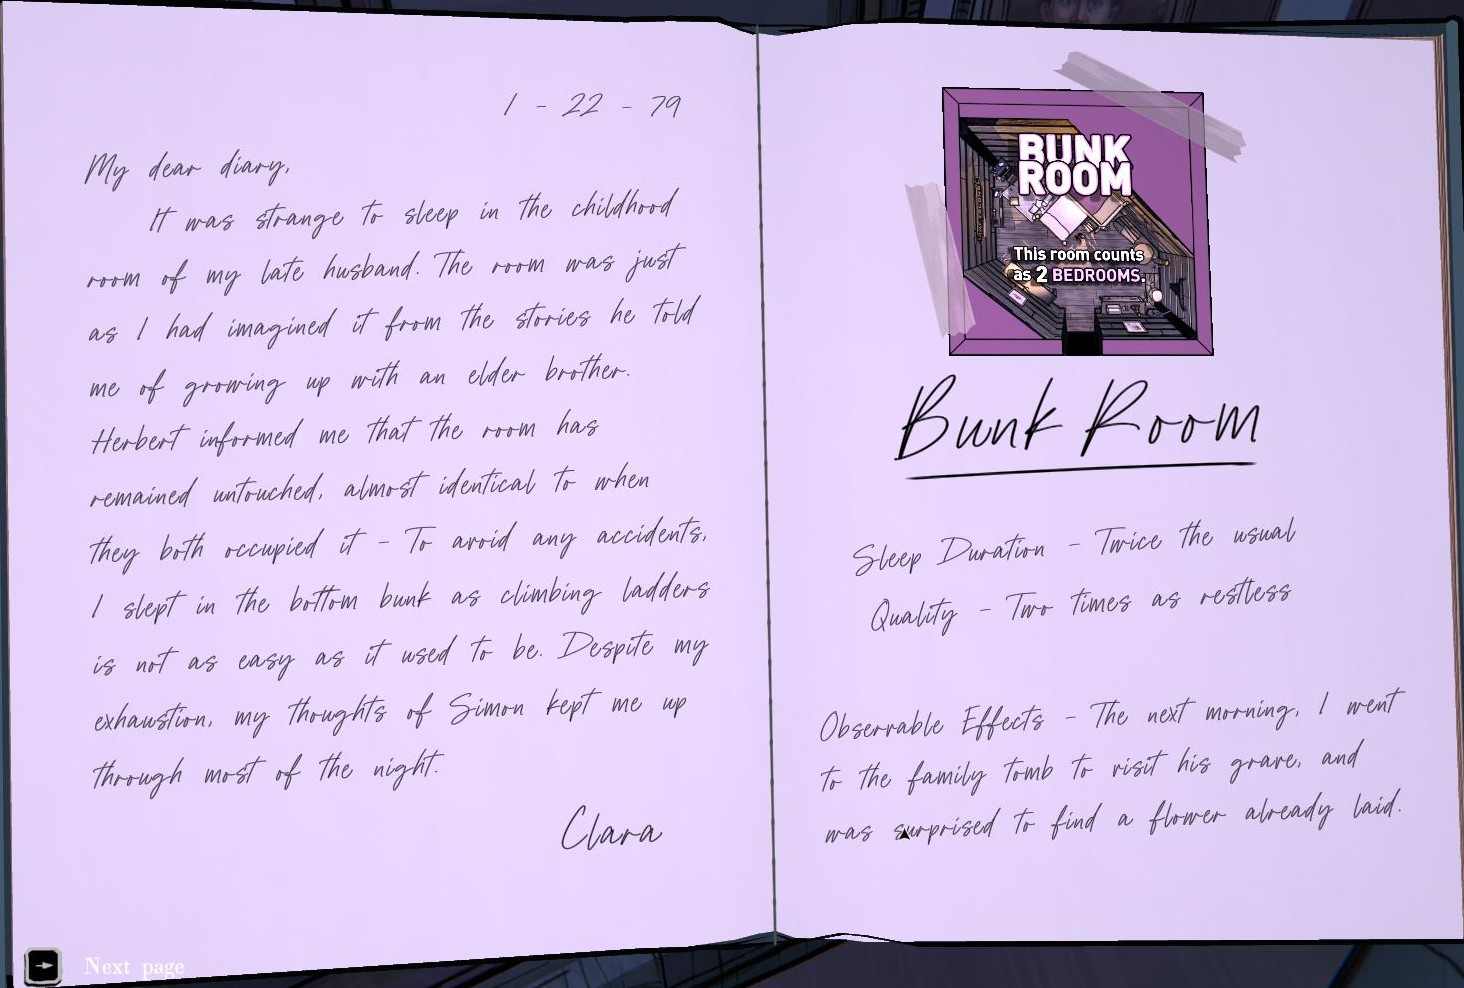 1 - 22 - 79
My dear diary,
It was strange to sleep in the childhood
room of my late husband. The room was just
as I had imagined it from the stories he told
me of growing up with an elder brother.
Herbert informed me that the room has
remained untouched, almost identical to when
they both occupied it - To avoid any accidents,
I slept in the bottom bunk as climbing ladders
is not as easy as it used to be. Despite my
exhaustion, my thoughts of Simon kept me up
through most of the night.
Clara
Next page
BUNK
ROOM
This room counts
as 2 BEDROOMS.
Bunk Room
Sleep Duration - Twice the usual
Quality - Two times as restless
Observable Effects - The next morning, I went
to the family tomb to visit his grave, and
was surprised to find a flower already laid.